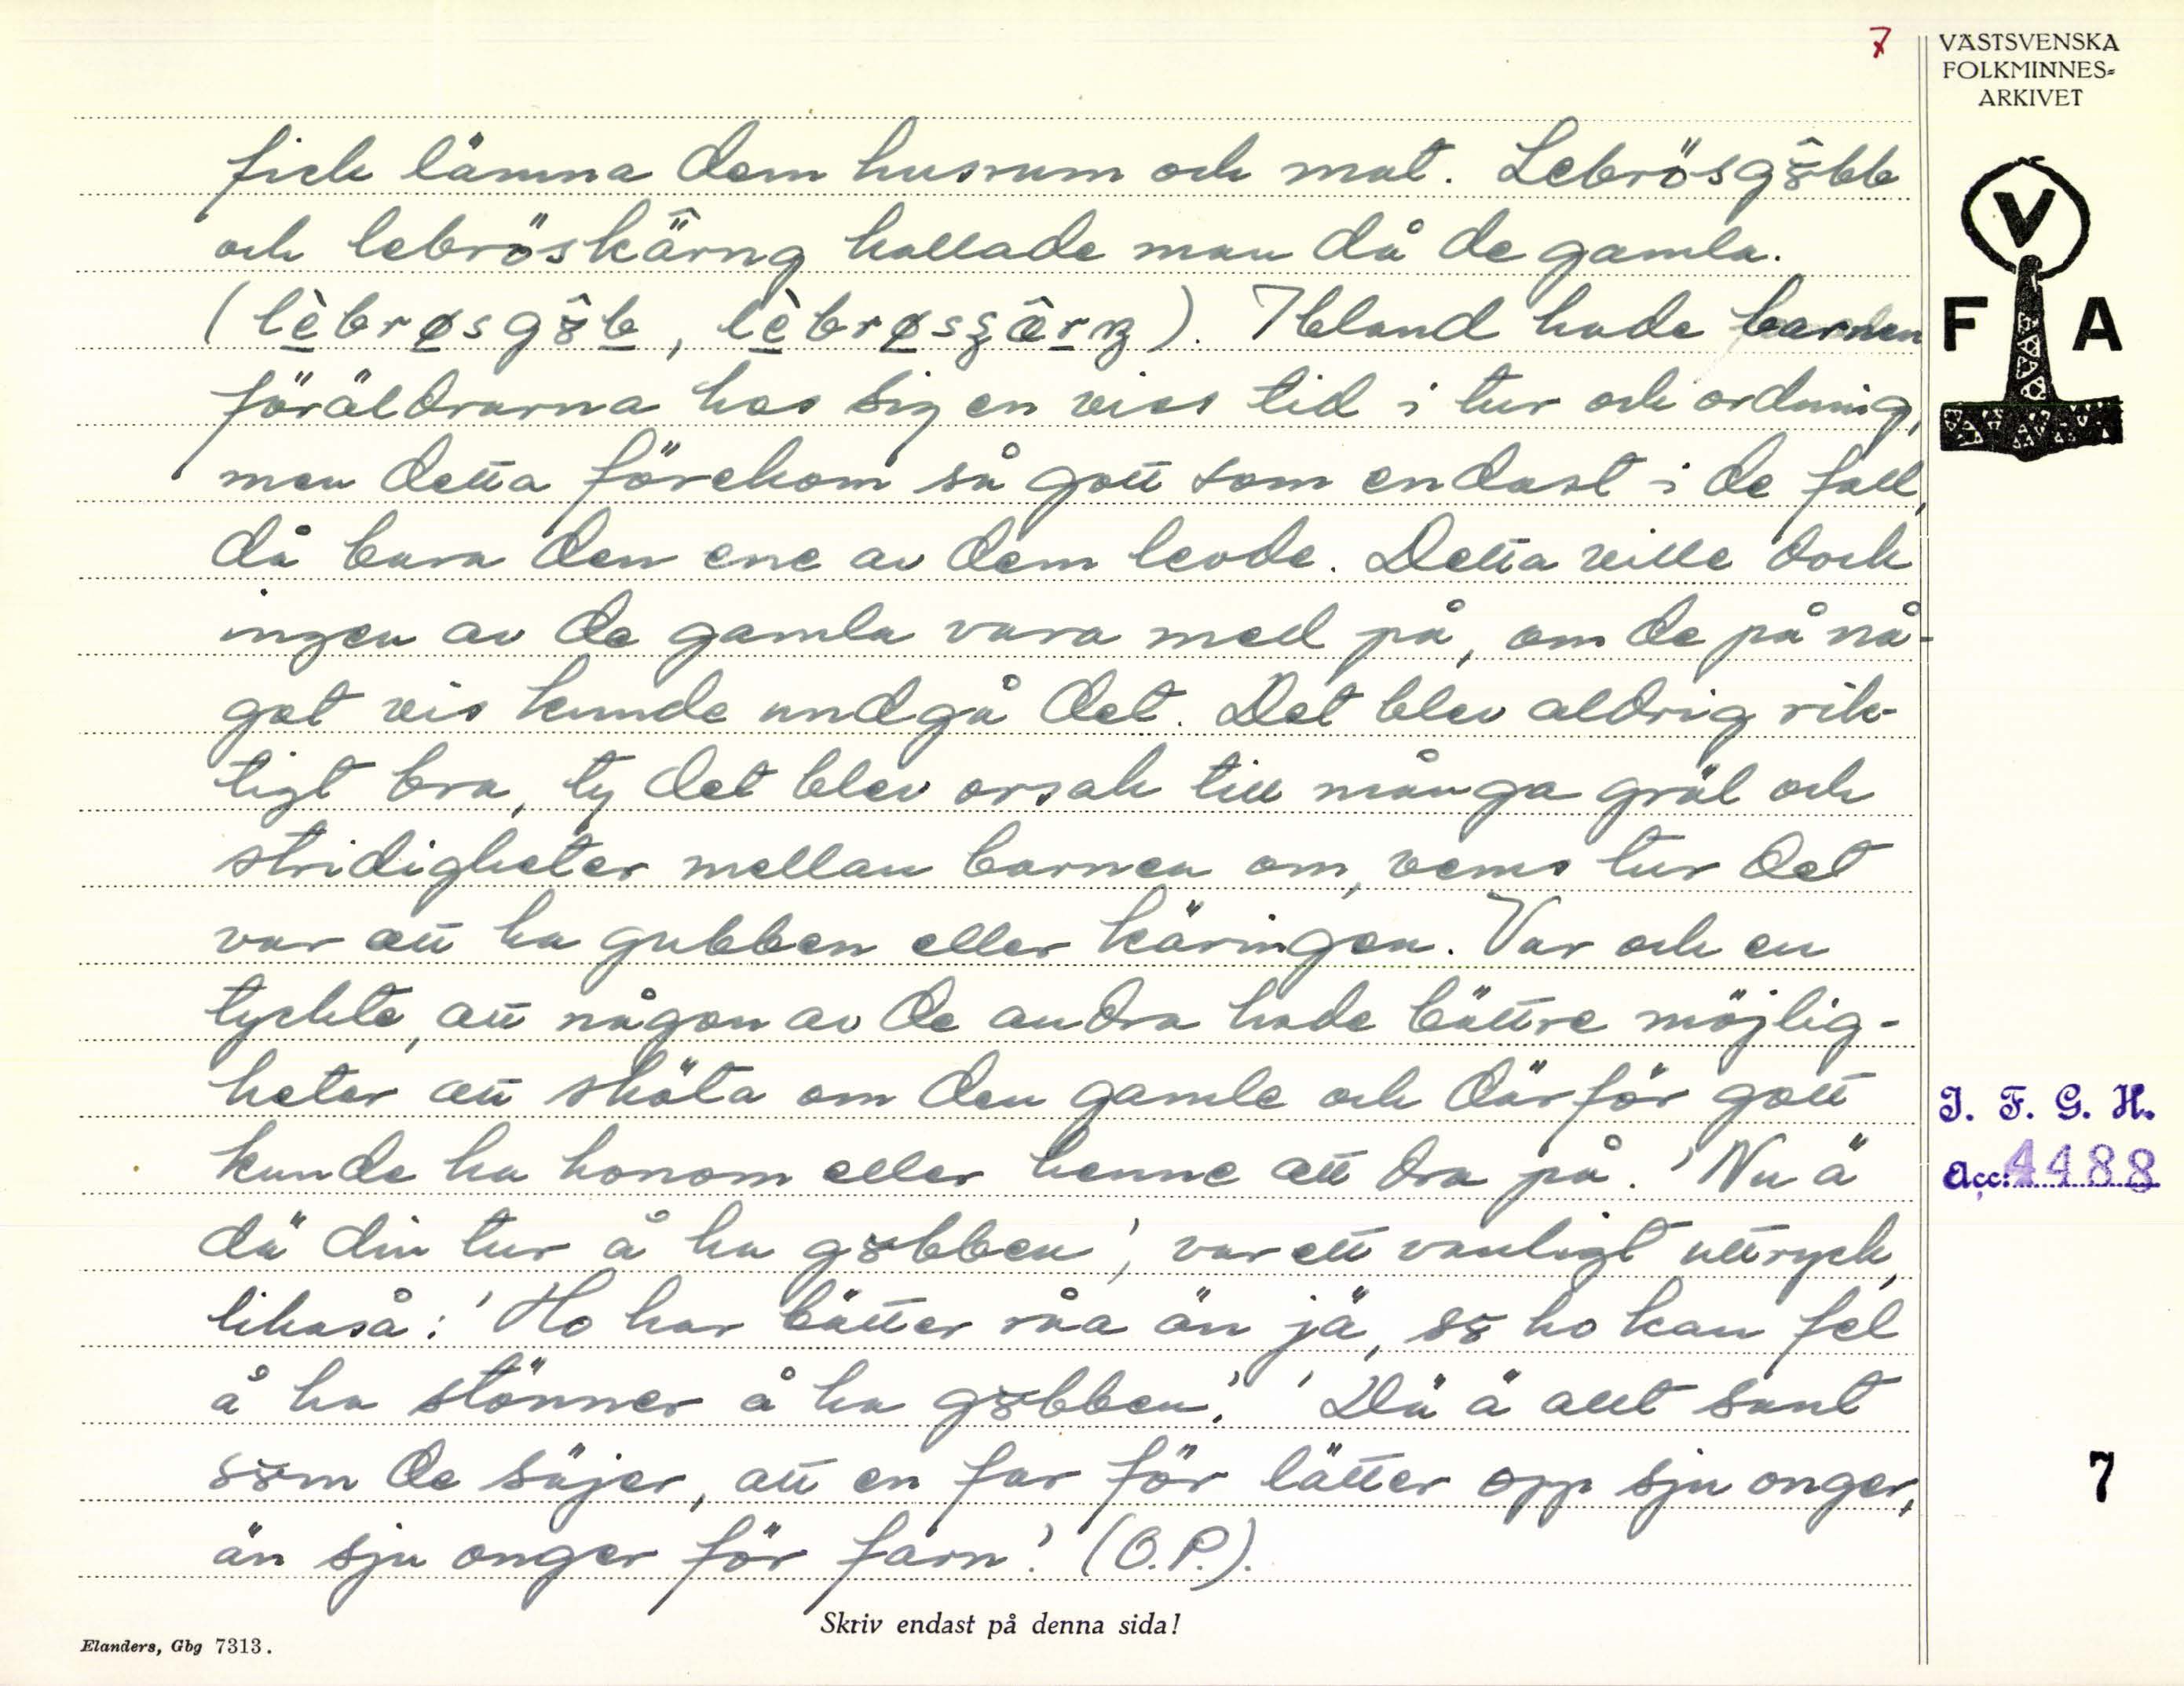 7
VÄSTSVENSKA
FOLKMINNES-
ARKIVET
V
F A
fick lämna dem husrum och mat. Lebrösgȣ̂bb
och lebröskä̂rng kallade man då de gamla.
(lèbrøsgȣ̂b, ). Ibland hade barnen
föräldrarna hos sig en viss tid i tur och ordning,
men detta förekom så gott som endast i de fall,
då bara den ene av dem levde. Detta ville dock
ingen av de gamla vara med på, om de på nå-
got vis kunde undgå det. Det blev aldrig rik-
tigt bra, ty det blev orsak till många gräl och
stridigheter mellan barnen om, vems tur det
var att ha gubben eller käringen. Var och en
tyckte, att någon av de andra hade bättre möjlig-
heter att sköta om den gamle och därför gott
kunde ha honom eller henne att dra på. 'Nu ä
dä din tur å ha gȣbben', var ett vanligt uttryck,
likaså: 'Ho har bätter råa än jä, sȣ ho kan fel
å ha stönner å ha gȣbben.' 'Dä ä allt sant
sȣm de säjer, att en far för lätter opp sju onger,
än sju onger för farn.' (O.P.).
I. F. G. H.
Acc: 4488
7
Skriv endast på denna sida!
Elanders, Gbg 7313.